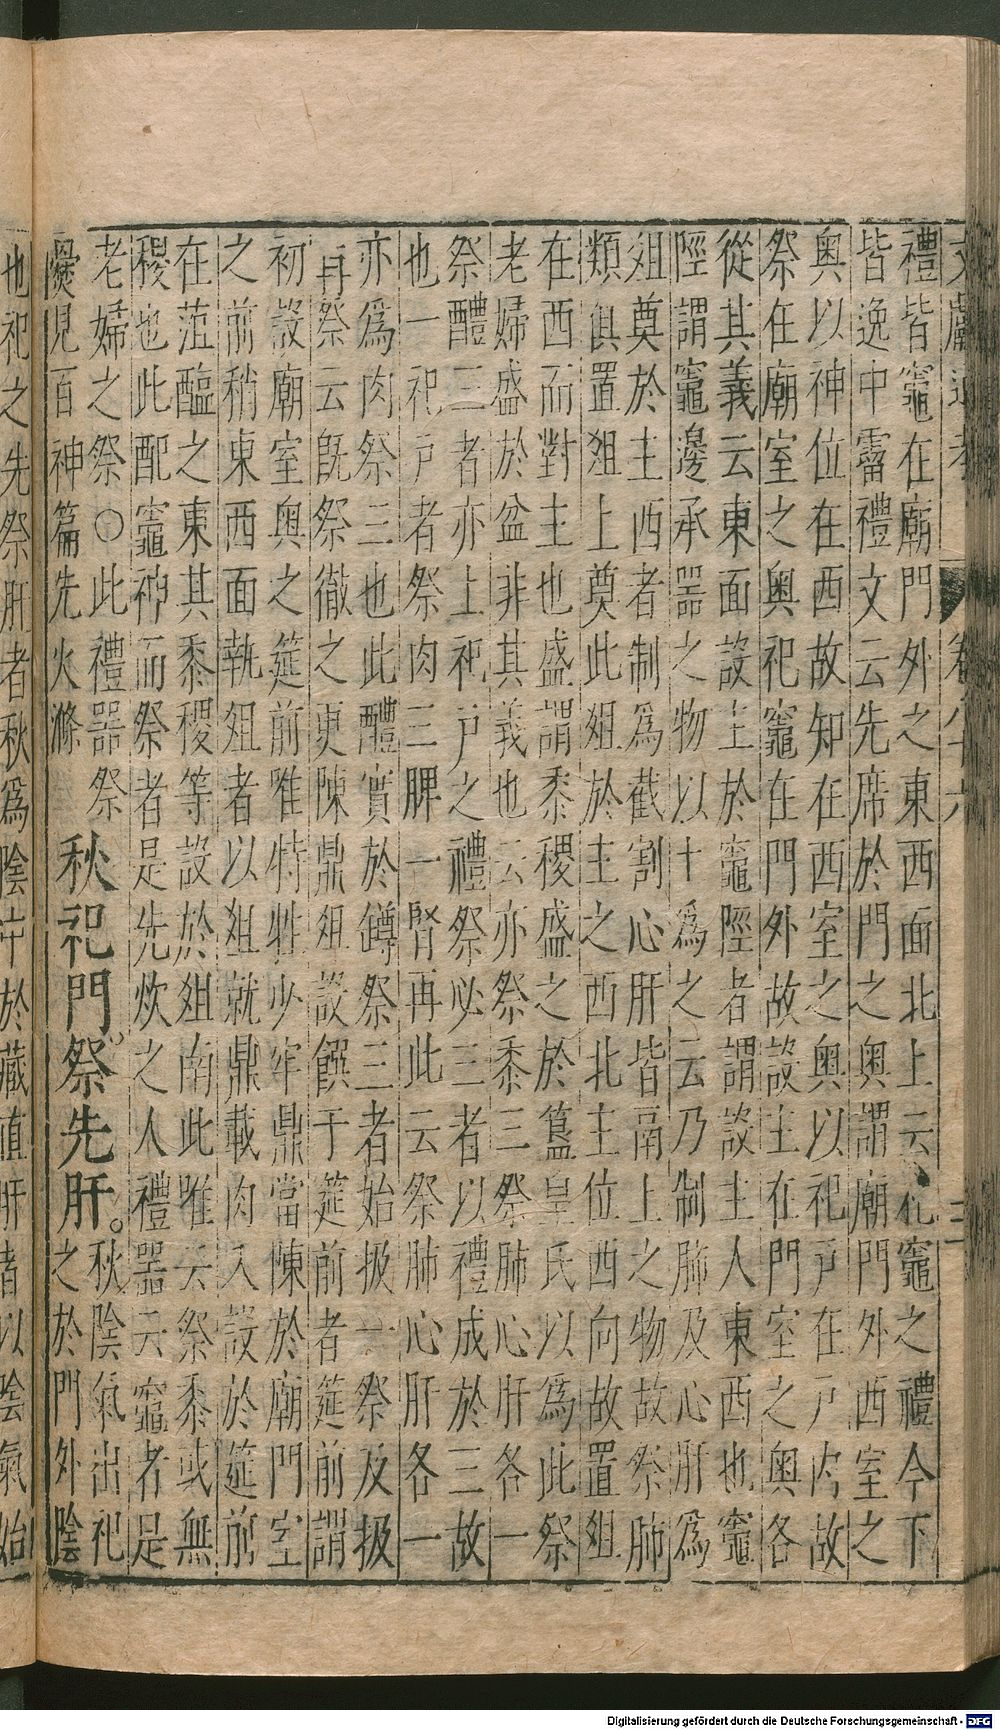 文獻通考 卷八十六 三
禮皆竈在廟門外之東西面北上云祀竈之禮今下
皆逸中霤禮文云先席於門之奧謂廟門外西室之
奧以神位在西故知在西室之奧以祀戶在戶內故
祭在廟室之奧祀竈在門外故設主在門室之奧各
從其義云東面設主於竈陘者謂設主人東西也竈
陘謂竈邊承器之物以土爲之云乃制肺及心肝爲
俎奠於主西者制爲截割心肝皆鬲上之物故祭肺
類俱置俎上奠此俎於主之西北主位西向故置俎
在西而對主也盛謂黍稷盛之於簋皇氏以爲此祭
老婦盛於盆非其義也云亦祭黍三祭肺心肝各一
祭醴三者亦上祀戶之禮祭必三者以禮成於三故
也一祀戶者祭肉三脾一腎再此云祭肺心肝各一
亦爲肉祭三也此醴實於罇祭三者始扱一祭及扱
再祭云旣祭徹之更陳鼎俎設饌于筵前者筵前謂
初設廟室奧之筵前唯特牲少牢鼎當陳於廟門室
之前稍東西面執俎者以俎就鼎載肉入設於筵前
在菹醢之東其黍稷等設於俎南此唯云祭黍或無
稷也此配竈神而祭者是先炊之人禮器云竈者是
老婦之祭〇此禮器祭
爨見百神篇先火滌
秋祀門祭先肝
秋陰氣出祀
之於門外陰
也祀之先祭肝者秋爲陰中於藏值肝者以陰氣始
Digitalisierung gefördert durch die Deutsche Forschungsgemeinschaft - DFG